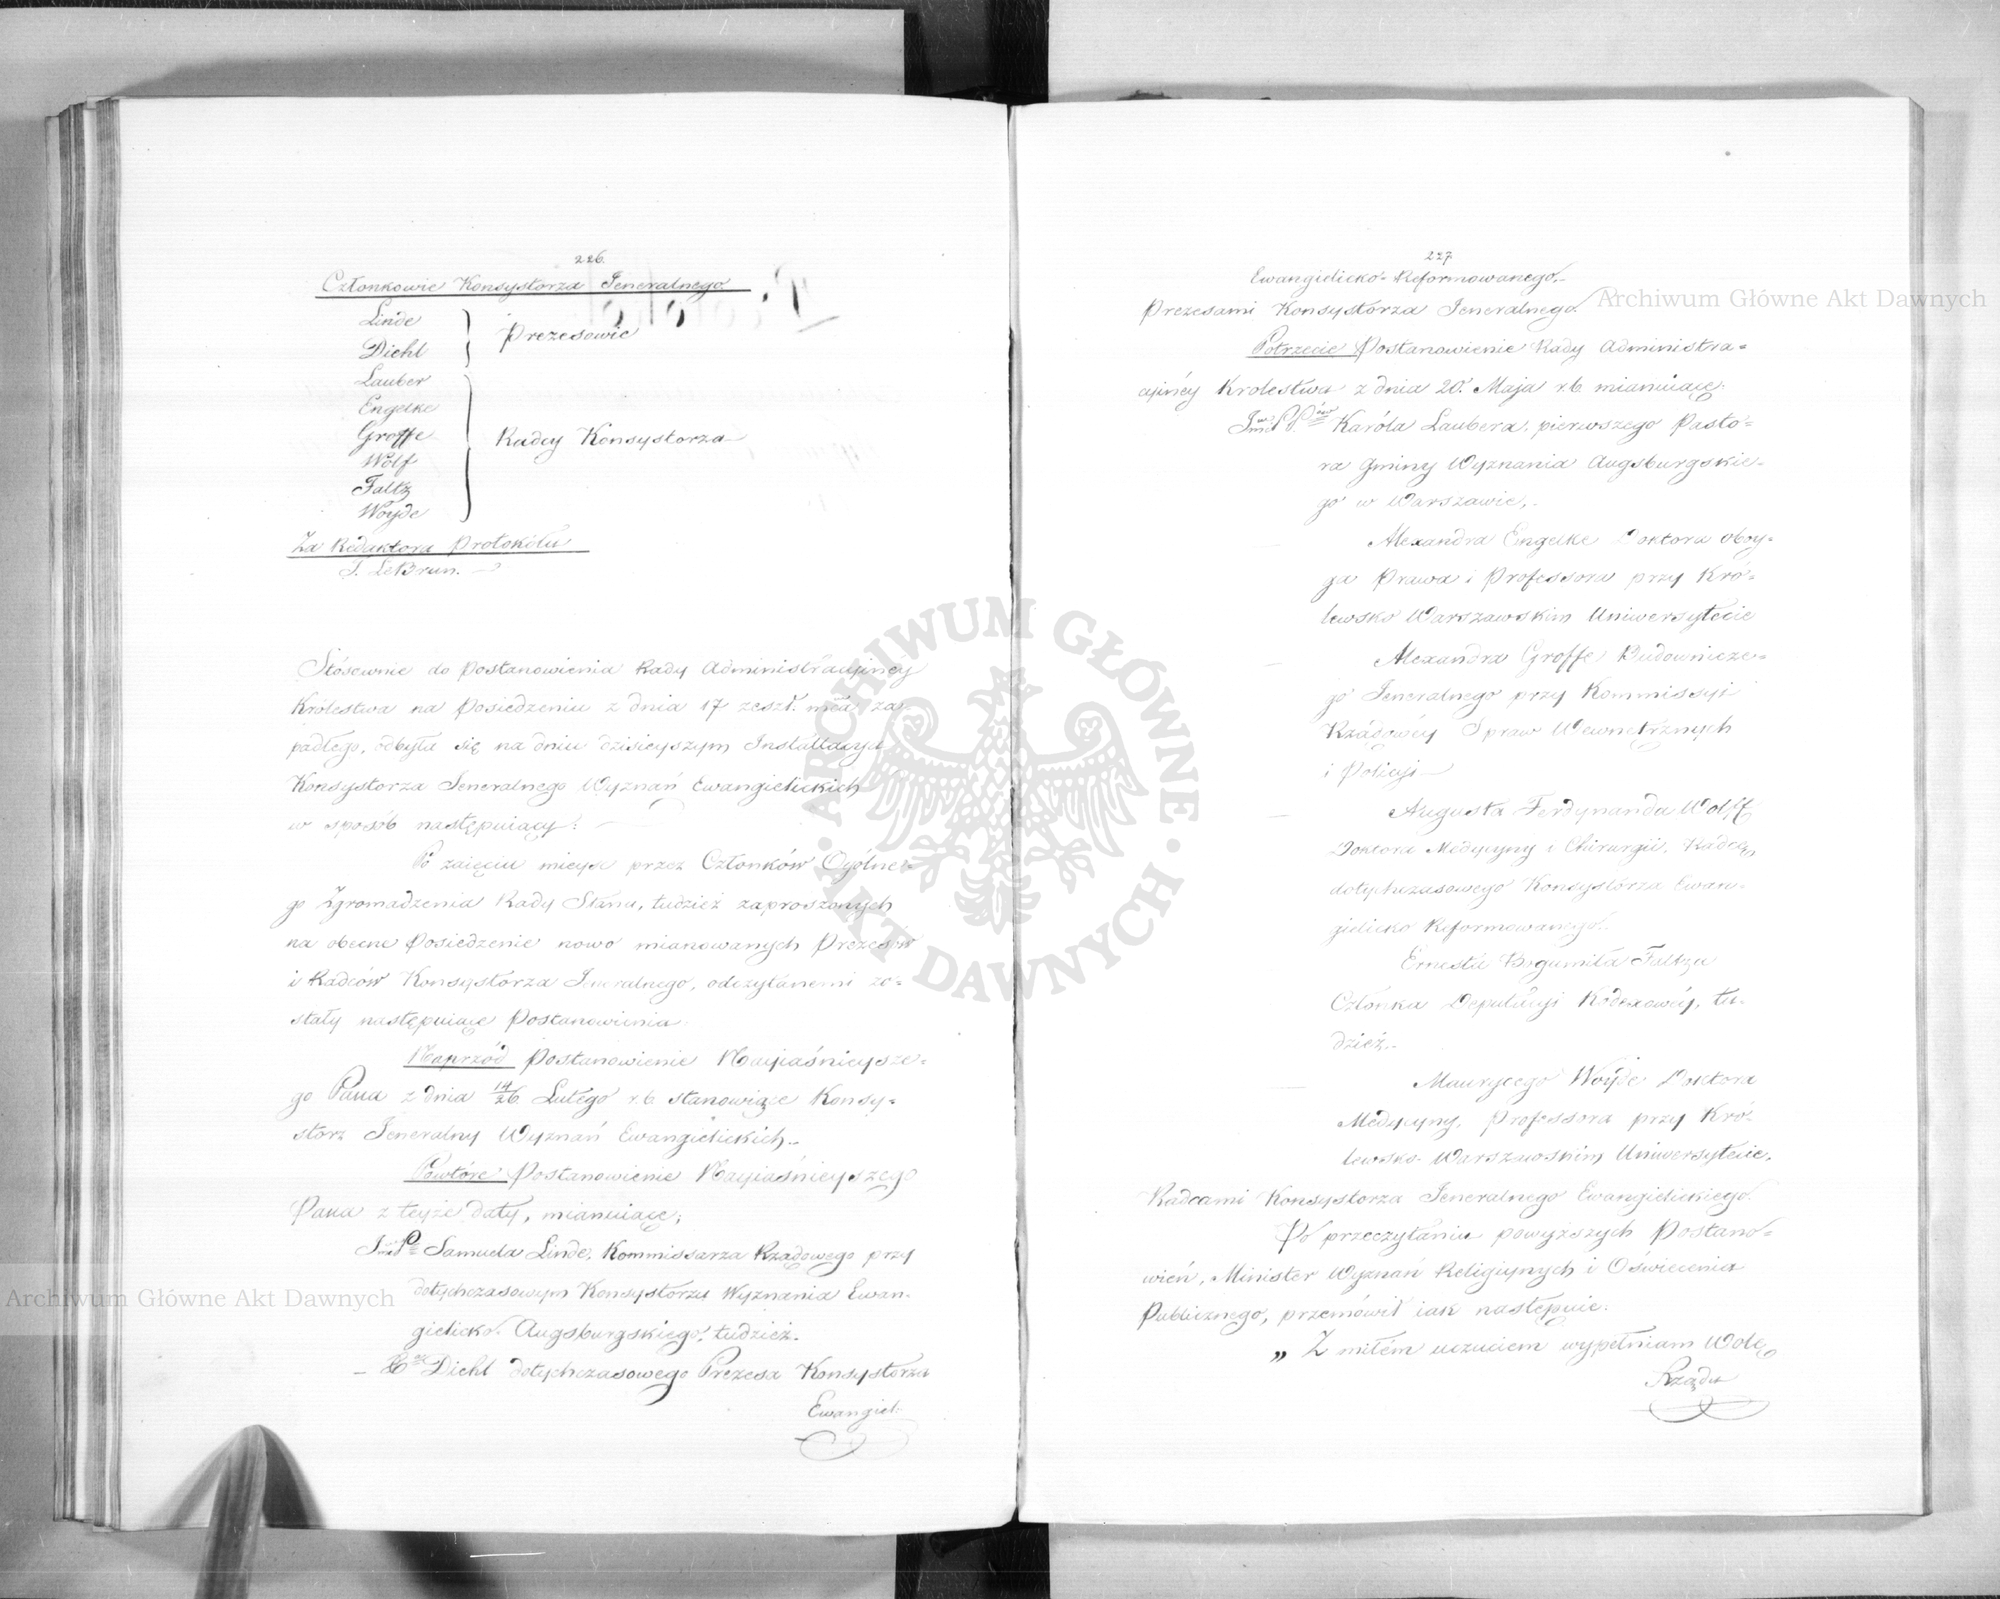 226.
Członkowie Konsystorza Jeneralnego
Linde
Diehl
Prezesowie
Lauber
Engelke
Groffe
Wolf
Faltz
Woyde
Radcy Konsystorza
Za Redaktora Protokółu
T. LeBrun.
Stósownie do postanowienia Rady Administracyiney
Królestwa na Posiedzeniu z dnia 17 zeszł. mca za-
padłego, odbyła się na dniu dzisieyszym Installacya
Konsystorza Jeneralnego Wyznań Ewangielickich
w sposób następuiący:
Po zaięciu mieysc przez Członków Ogólne-
go Zgromadzenia Rady Stanu, tudzież zaproszonych
na obecne Posiedzenie nowo mianowanych Prezesów
i Radców Konsystorza Jeneralnego, odczytanemi zo-
stały następuiące Postanowienia:
Naprzód Postanowienie Nayiaśnieysze-
go Pana z dnia 14/26 Lutego r.b. stanowiące Konsy-
storz Jeneralny Wyznań Ewangielickich.
Powtóre Postanowienie Nayiaśnieyszego
Pana z teyże daty, mianuiące;
JmcP. Samuela Linde, Kommissarza Rządowego przy
dotychczasowym Konsystorzu Wyznania Ewan-
gielicko-Augsburgskiego, tudzież.
Diehl dotychczasowego Prezesa Konsystorza
Ewangiel:
227
Ewangielicko-Reformowanego,
Prezesami Konsystorza Jeneralnego.
Potrzecie Postanowienie Rady Administra-
cyiney Krolestwa z dnia 20. Maja r.b. mianuiące:
Karóla Laubera, pierwszego Pasto-
ra Gminy Wyznania Augsburgskie-
go w Warszawie,
Alexandra Engelke Doktora oboy-
ga Prawa i Professora przy Kró-
lewsko Warszawskim Uniwersytecie
Alexandra Groffe Budownicze-
go Jeneralnego przy Kommissyi
Rządowéy Spraw Wewnętrznych
i Policyi
Augusta Ferdynanda Wolff
Doktora Medycyny i Chirurgii, Radcę
dotychczasowego Konsystorza Ewan-
gielicko Reformowanego.
Ernesta Bogumiła Faltza
Członka Deputacyi Kodexowéy, tu-
dzież.
Maurycego Woyde Doktora
Medycyny, Professora przy Kró-
lewsko-Warszawskim Uniwersytecie,
Radcami Konsystorza Jeneralnego Ewangielickiego.
Po przeczytaniu powyższych Postano-
wień, Minister Wyznań Religiynych i Oświecenia
Publicznego, przemówił iak następuie:
„ Z miłém uczuciem wypełniam Wolę
Rządu
Archiwum Główne Akt Dawnych
Archiwum Główne Akt Dawnych
ARCHIWUM GŁÓWNE · AKT DAWNYCH ·